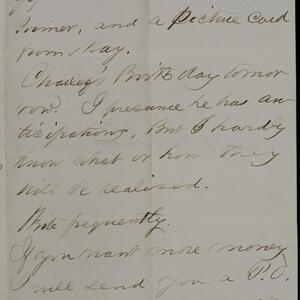 Primer, and a Picture Card
from May.
Charley's Birth day tomor
row. I presume he has an
ticipations, But I hardly
know what or how they
will be realised.
Write frequently.
If you want more money
I will send you a P.O.